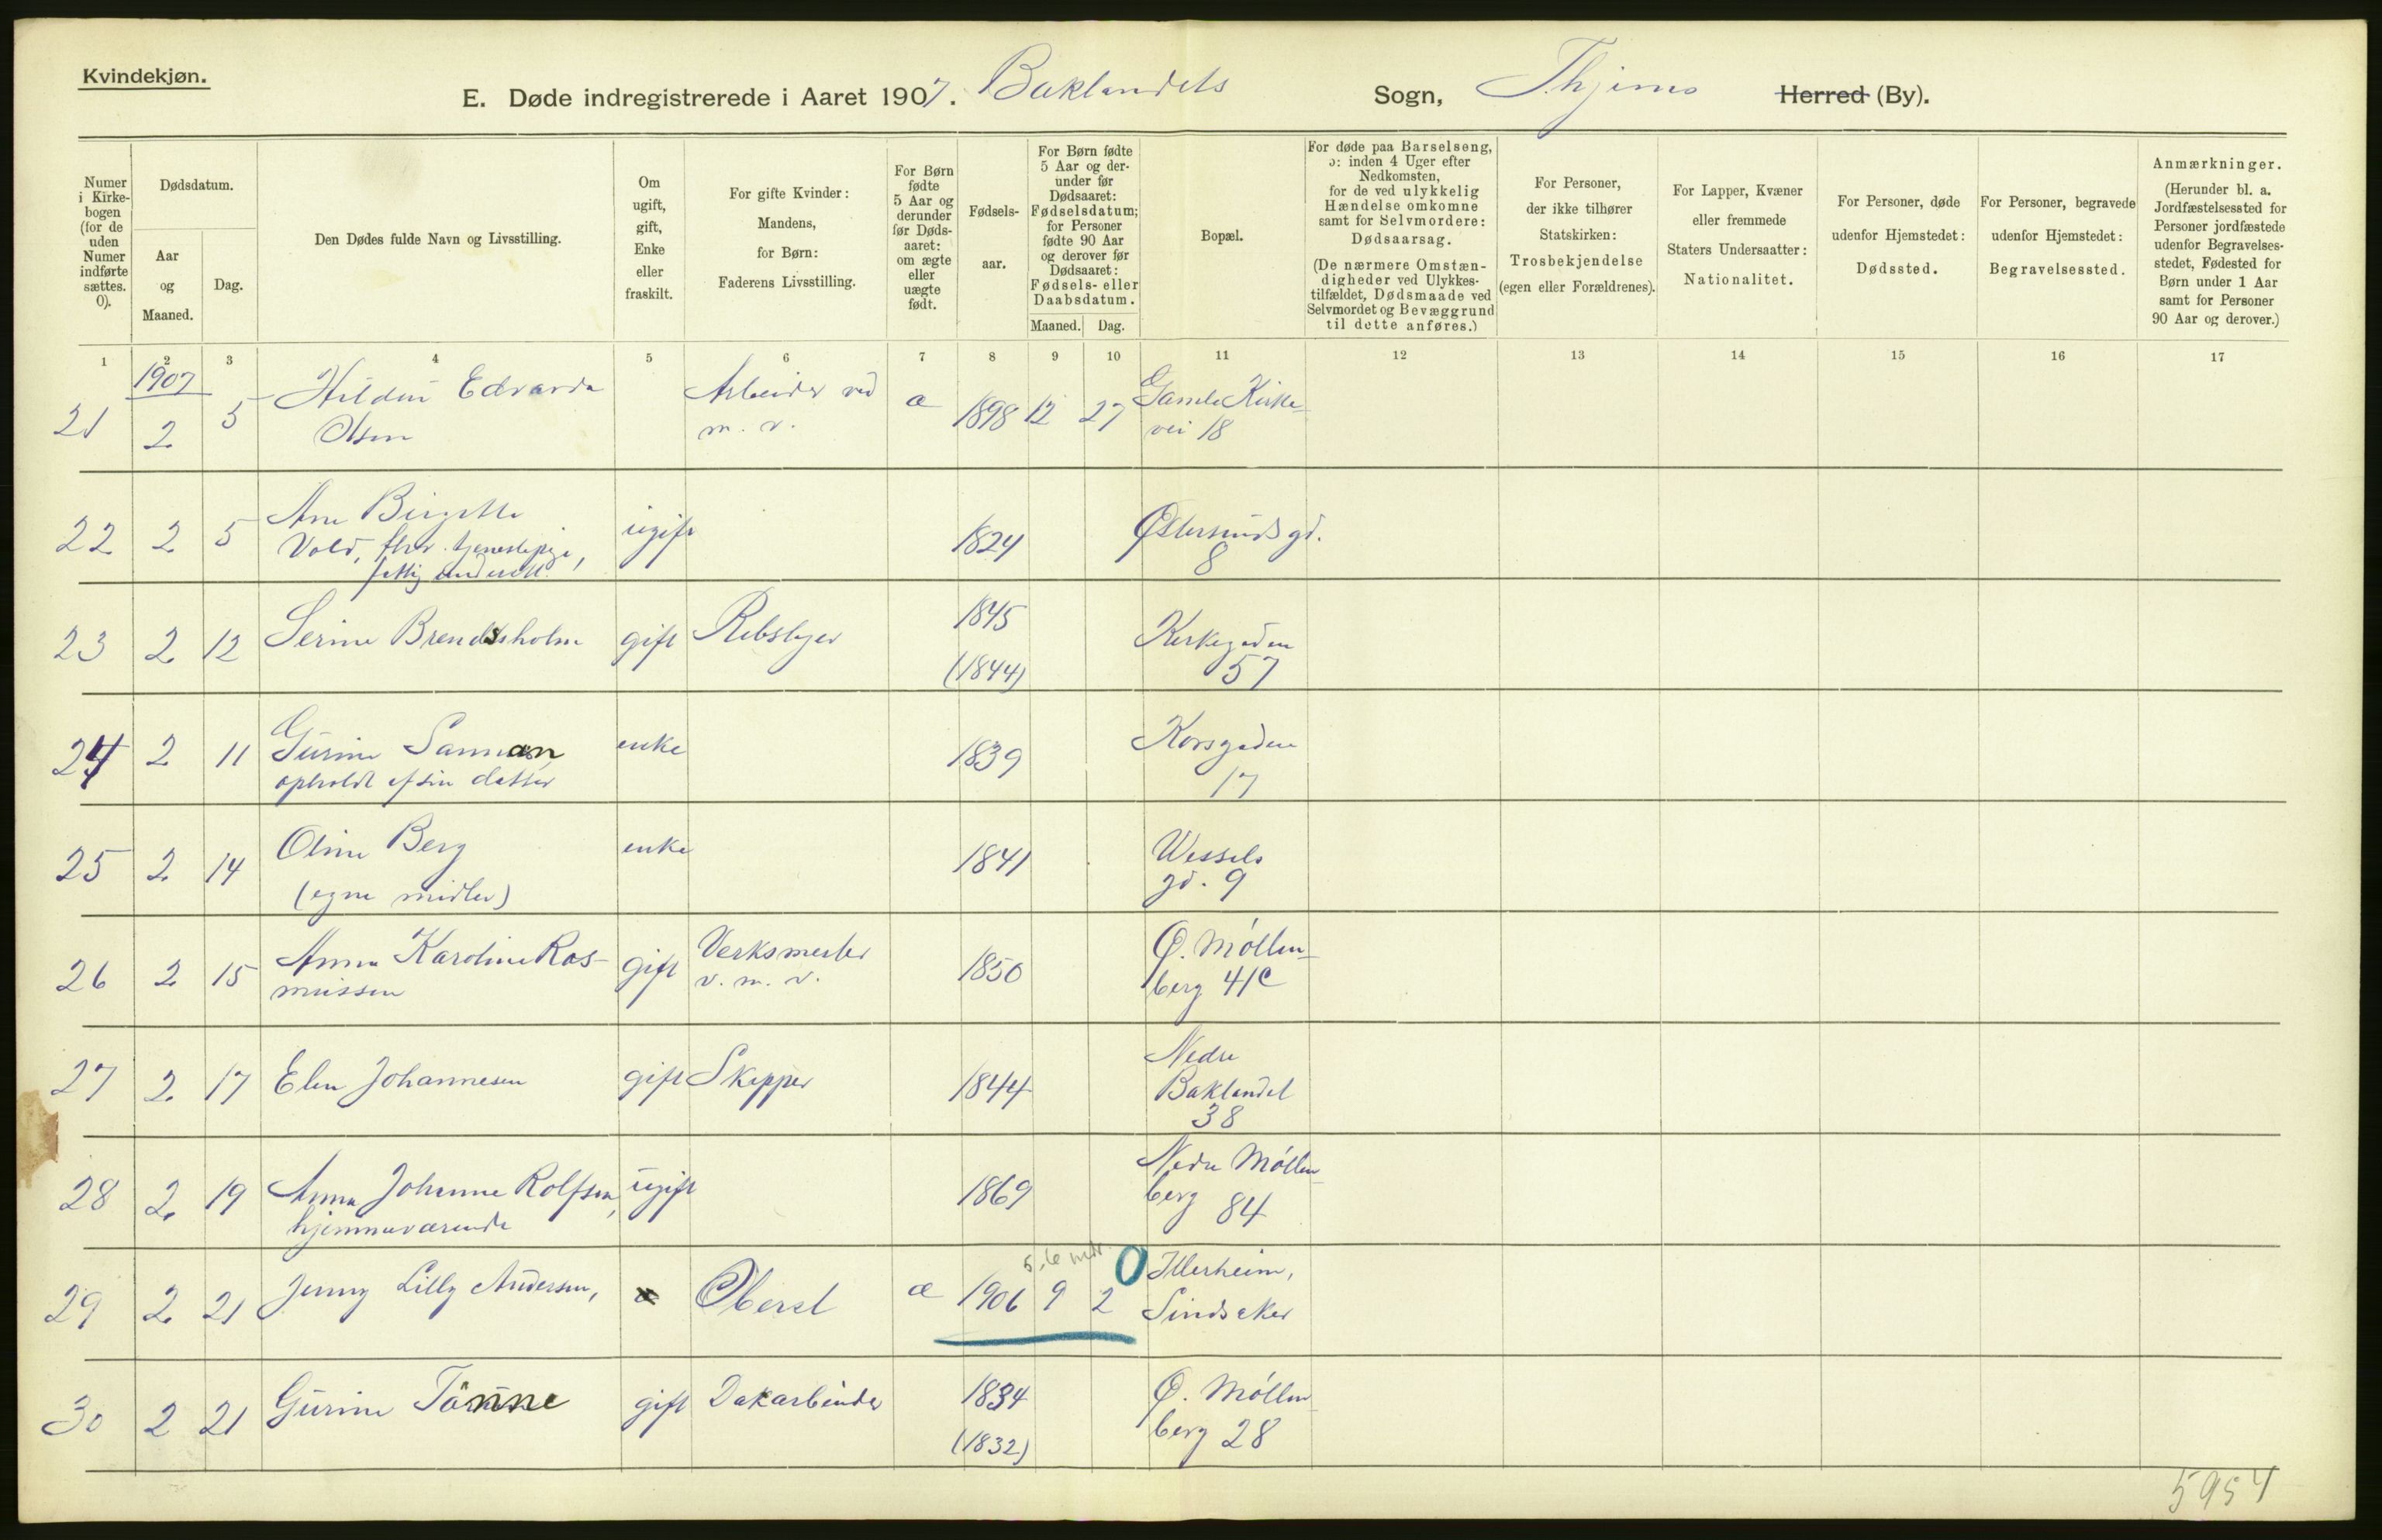 Kvindekjøn.
E. Døde indregistrerede i Aaret 1907. Baklandets Sogn, Thjems Herred (By).
Numer
i Kirke-
bogen
(for de
uden
Numer
indførte
sættes.
0).
Dødsdatum.
Aar
og
Maaned.
Dag.
Den Dødes fulde Navn og Livsstilling.
Om
ugift,
gift,
Enke
eller
fraskilt.
For gifte Kvinder:
Mandens,
for Børn:
Faderens Livsstilling.
For Børn
fødte
5 Aar og
derunder
før Døds-
aaret:
om ægte
eller
uægte
født.
Fødsels-
aar.
For Børn fødte
5 Aar og der-
under før
Dødsaaret:
Fødselsdatum;
for Personer
fødte 90 Aar
og derover før
Dødsaaret:
Fødsels- eller
Daabsdatum.
Maaned. Dag.
Bopæl.
For døde paa Barselseng,
ɔ: inden 4 Uger efter
Nedkomsten,
for de ved ulykkelig
Hændelse omkomne
samt for Selvmordere:
Dødsaarsag.
(De nærmere Omstæn-
digheder ved Ulykkes-
tilfældet, Dødsmaade ved
Selvmordet og Bevæggrund
til dette anføres.)
For Personer,
der ikke tilhører
Statskirken:
Trosbekjendelse
(egen eller Forældrenes).
For Lapper, Kvæner
eller fremmede
Staters Undersaatter:
Nationalitet.
For Personer, døde
udenfor Hjemstedet:
Dødssted.
For Personer, begravede
udenfor Hjemstedet:
Begravelsessted.
Anmærkninger.
(Herunder bl. a.
Jordfæstelsessted for
Personer jordfæstede
udenfor Begravelses-
stedet, Fødested for
Børn under 1 Aar
samt for Personer
90 Aar og derover.)
1 2 3 4 5 6 7 8 9 10 11 12 13 14 15 16 17
1907
21 2 5 Hildur Edvarda Arbeider ved æ 1898 12 27 Gamle Kirke-
Olsen m. v. vei 18
22 2 5 Ane Birgitte ugift 1824 Østersunds gd.
Vold, fhv. tjenestepige, 8
fattig underst.
23 2 12 Serine Brendsholm gift Rebslager 1845 Kirkegaden
(1844) 57
24 2 11 Gurine Samman enke 1839 Korsgaden
opholdt af sin datter 17
25 2 14 Oline Berg enke 1841 Wessels
(egne midler) gd. 9
26 2 15 Anna Karoline Ras- gift Verksmester 1850 Ø. Møllen-
mussen v. m. v. berg 41c
27 2 17 Elen Johannesen gift Skipper 1844 Nedre
Baklandet
38
28 2 19 Anna Johanne Rolfsen, ugift 1869 Nedre Møllen-
hjemmeværende berg 84
5,6 mdr. 0
29 2 21 Jenny Lilly Andersen, Oberst æ 1906 9 2 Illerheim,
Lindsaker
30 2 21 Gurine Tänne gift Dakarbeider 1834 Ø. Møllen-
(1832) berg 28
5954